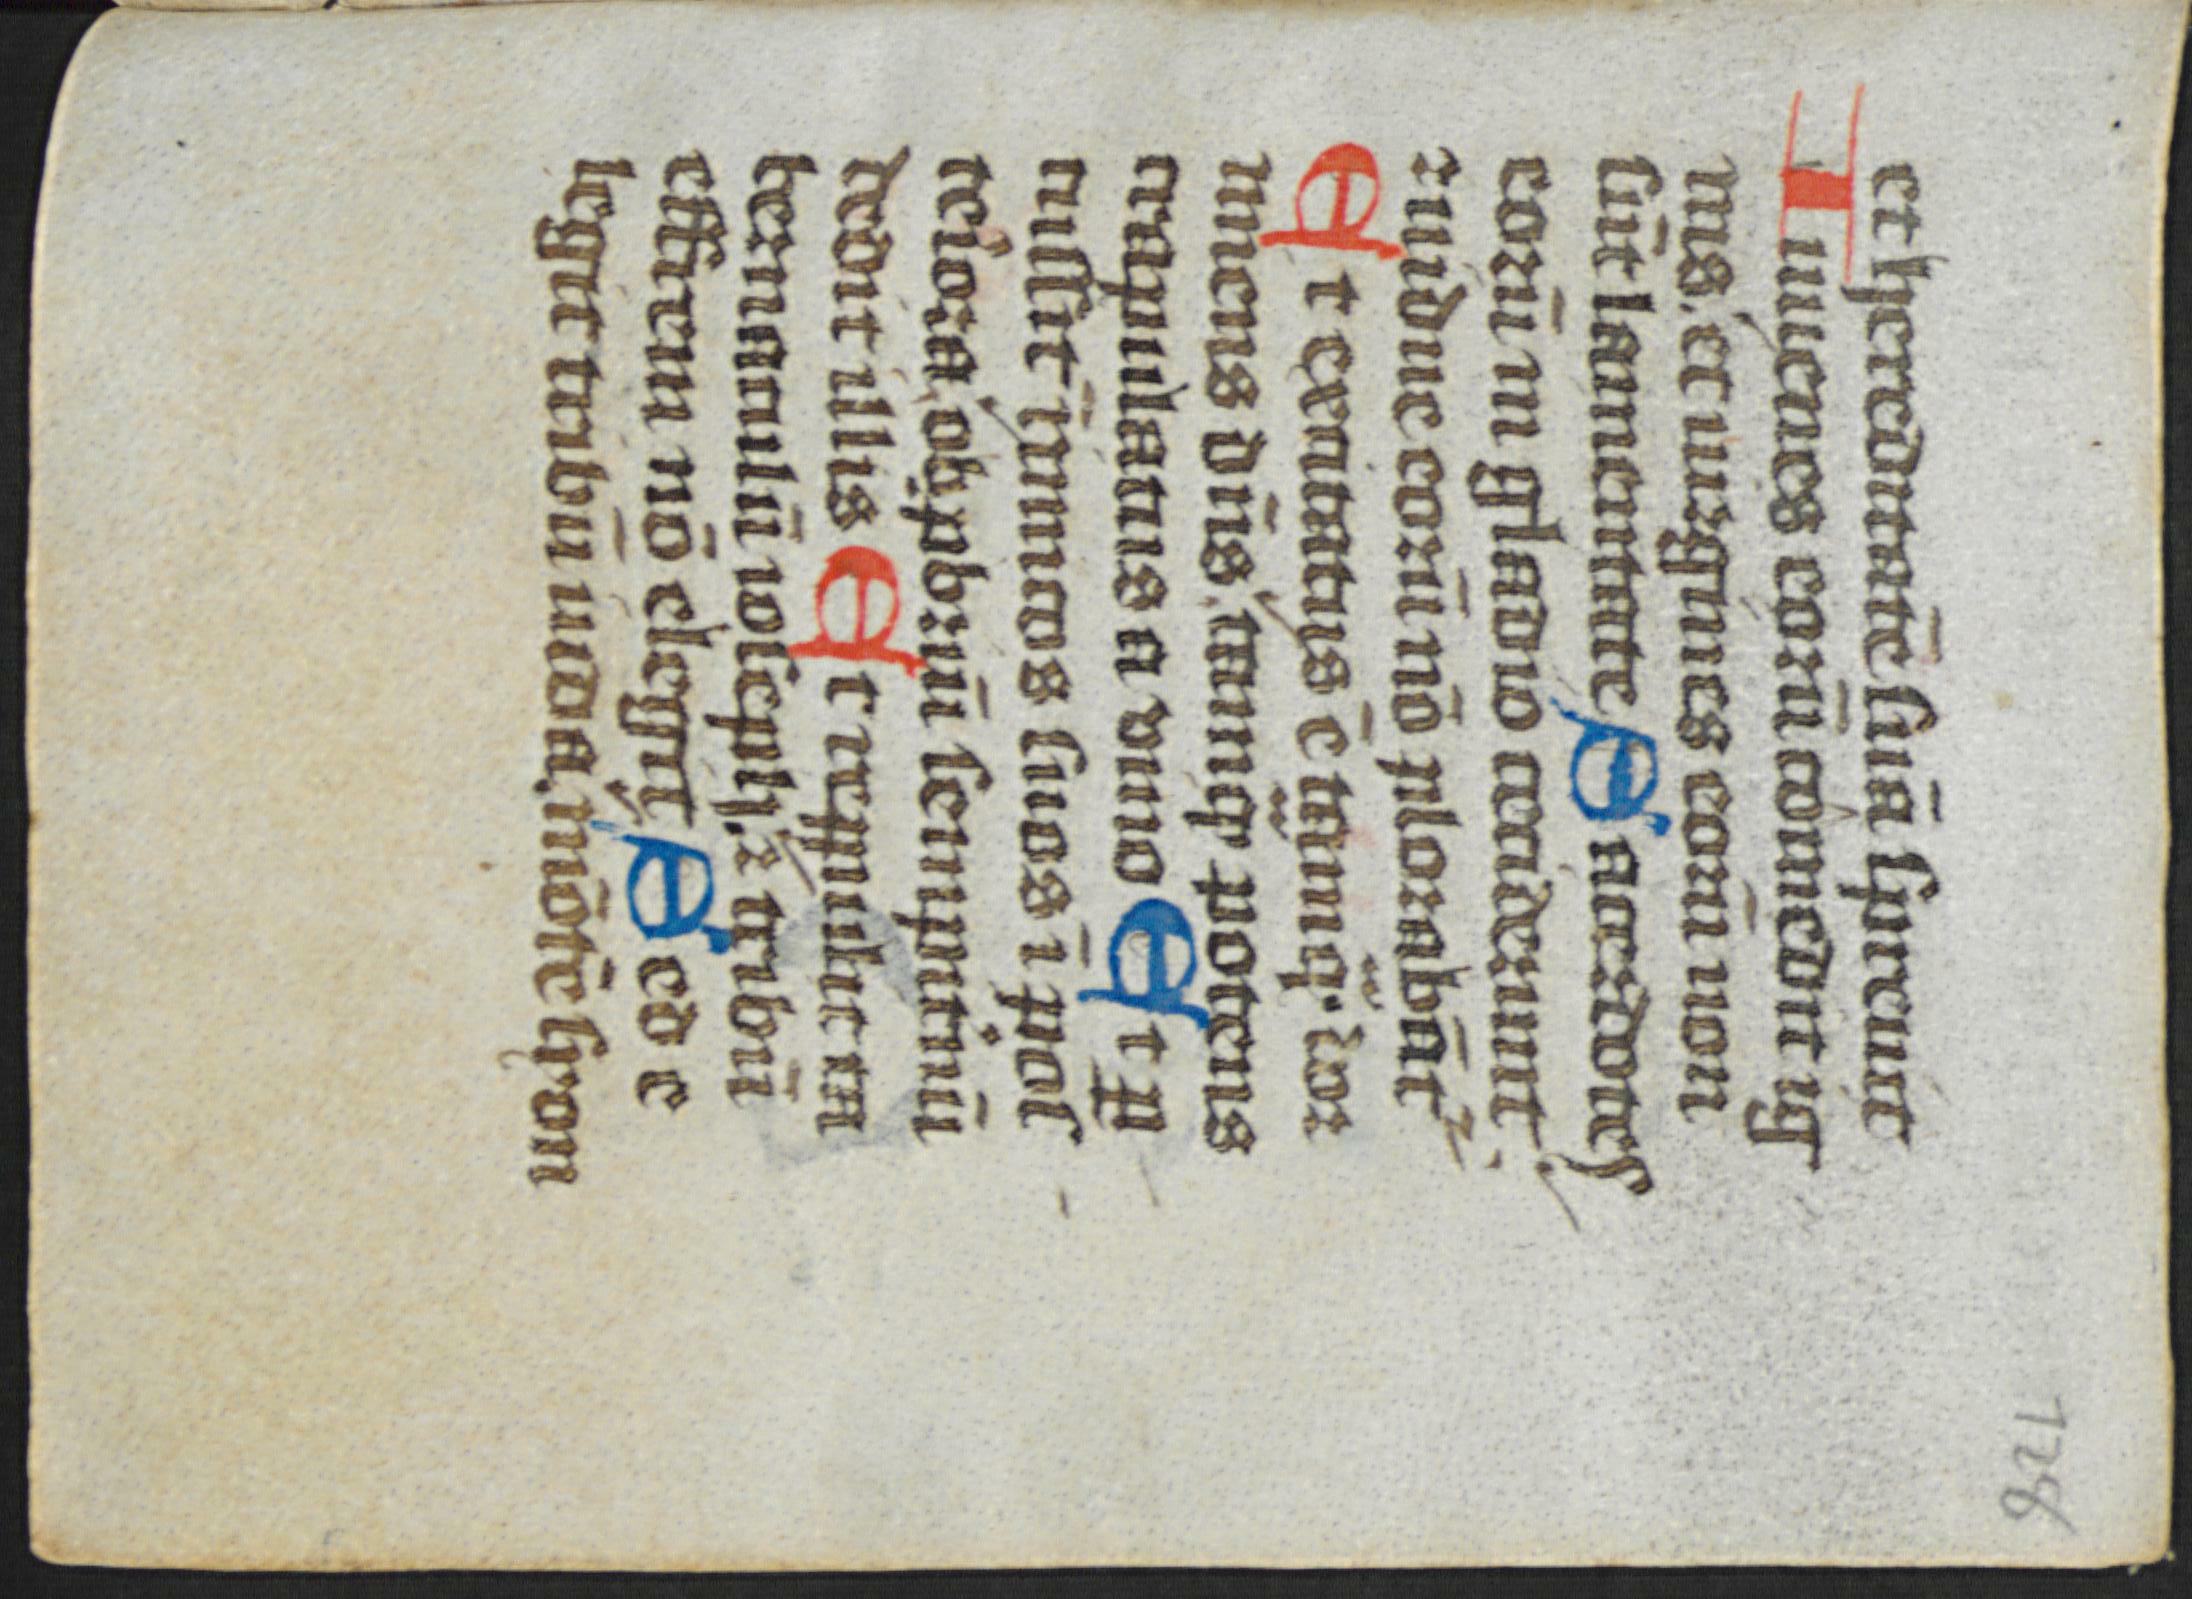 128
et hereditatē suā spreuit
Iuuenes eorū comedit ig
nis. et uirgines eorū non
sūt lamentate Sacerdotes
eorū in gladio ceciderunt
⁊ uidue eorū nō plorabāt᷑
Et excitatus ē tāq̄. dor
miens dn̄s. tamq̄ potens
crapulatus a vino Et ꝑ
cussit īimicos suos ī pos
teriora obꝓbriū sempitnū
dedit illis Et repulit ta
bernaculū ioseph. ⁊ tribū
effraim nō elegit Sed e
legit tribū iuda. mōtē syon